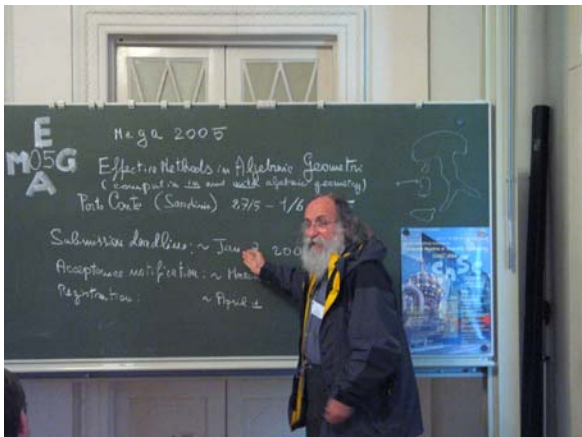 E
M05G
A
Mega 2005
Effective Methods in Algebraic Geometry
(computation in and with algebraic geometry)
Porto Conte (Sardinia) 27/5 - 1/6
Submission deadline: ~ Jan 200
Acceptance notification: ~
Registration: ~ April 1